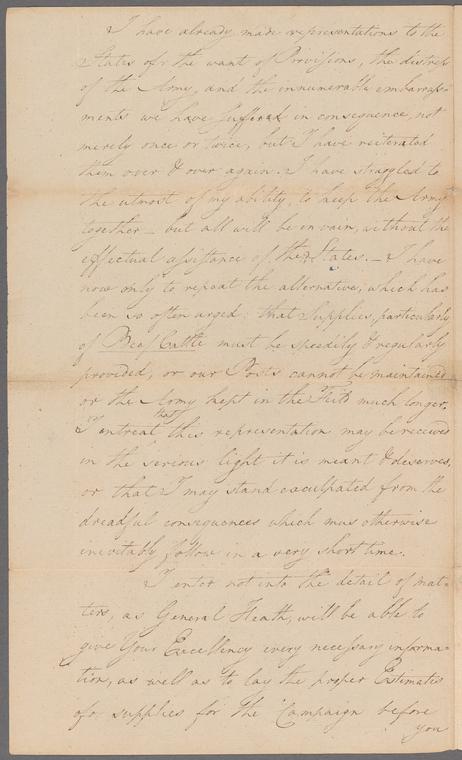 I have already made representations to the
States of the want of Provisions, the distress
of the Army, and the innumerable embarrass-
ments we have suffered in consequence, not
merely once or twice, but I have reiterated
them over & over again. I have struggled to
the utmost of my ability, to keep the Army
together — but all will be in vain, without the
effectual assistance of the States. — I have
now only to repeat the alternative, which has
been so often urged: that Supplies, particularly
of Beef Cattle must be speedily & regularly
provided, or our Posts cannot be maintained
or the Army kept in the Field much longer.
I entreat that this representation may be received
in the serious light it is meant & deserves,
or that I may stand exculpated from the
dreadful consequences which mus otherwise
inevitably follow in a very short time.
I enter not into the detail of mat-
ters, as General Heath, will be able to
give Your Excellency every necessary informa-
tion, as well as to lay the proper Estimates
of supplies for the Campaign before
you